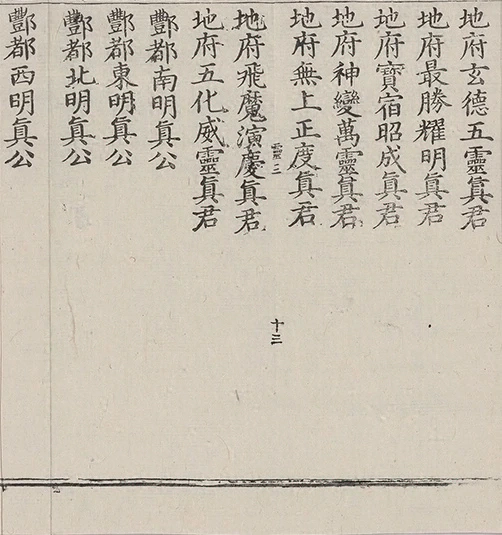 地府玄德五靈真君
地府最勝耀明真君
地府寶宿昭成真君
地府神變萬靈真君
地府無上正度真君
十三
地府飛魔演慶真君
地府五化威靈真君
酆都南明真公
酆都東明真公
酆都北明真公
酆都西明真公